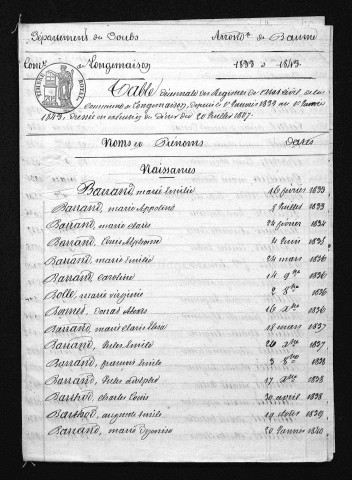 Département du Doubs Arrondt. de Baume
Come. de Longemaison 1833 à 1843
TIMBRE ROYAL
Table décennale des Registres de l'état civil de la
commune de Longemaison, depuis le 1er Janvier 1833 au 1er Janvier
1843, dressée en exécution du décret du 20 Juillet 1807.
Noms et Prénoms Dates
Naissances
Barrand marie Emilie 16 février 1833
Barrand, marie Appoline 8 Juillet 1833
Barrand, marie claire 24 février 1834
Barrand, Louis Alphonse 4 Juin 1835
Barrand, marie Emilie 24 mars 1836
Barrand, Caroline 14 9bre 1836
Bolle, marie virginie 2 8bre 1836
Bonnet, Donat 16 Xbre 1836
Barrand, marie claire 18 mars 1837
Barrand, Jules Emile 26 Xbre 1837
Barrand, françois Emile 3 8bre 1838
Barrand, Jules 17 Xbre 1838
Barthod, charles Louis 30 avril 1838
Barthod, auguste Emile 19 1839
Barrand, marie 20 Janvier 1840